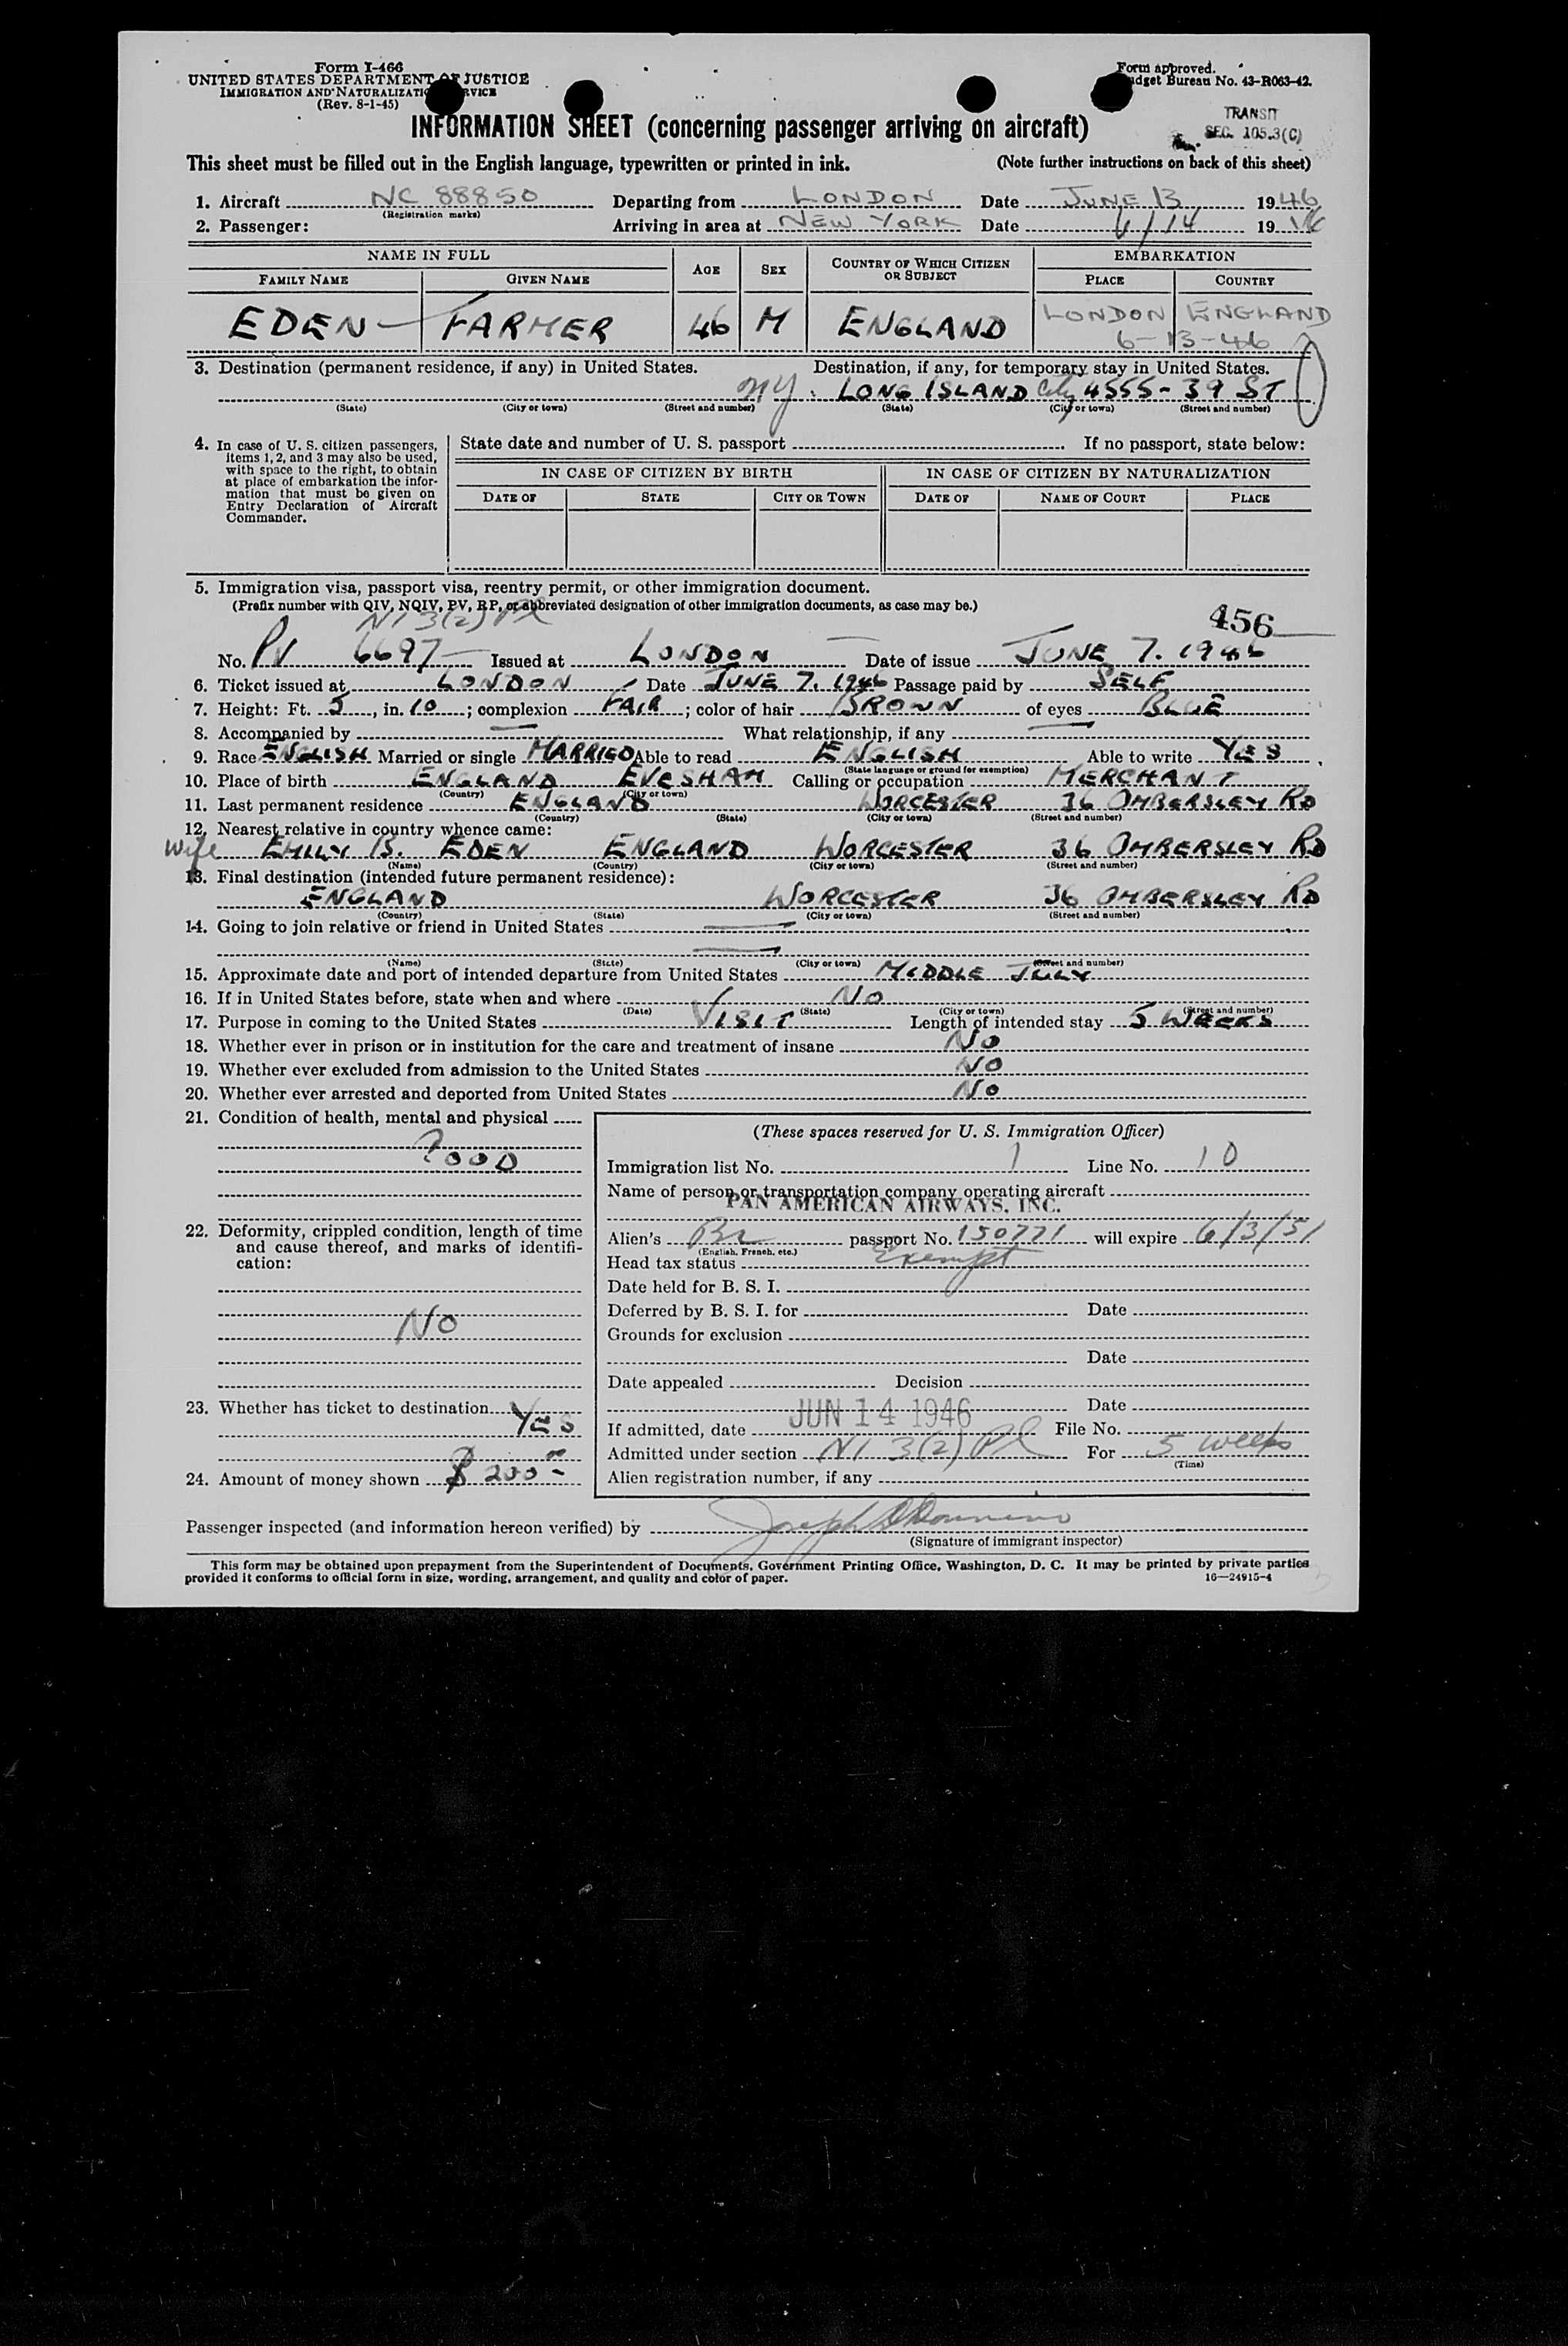 Form I-466
UNITED STATES DEPARTMENT OF JUSTICE
IMMIGRATION AND NATURALIZATION SERVICE
(Rev. 8-1-45)
Form approved.
Budget Bureau No. 43-R063-42.
TRANSIT
SEC. 105.3(C)
INFORMATION SHEET (concerning passenger arriving on aircraft)
This sheet must be filled out in the English language, typewritten or printed in ink. (Note further instructions on back of this sheet)
1. Aircraft NC 88850 Departing from LONDON Date JUNE 13 1946
(Registration marks)
2. Passenger: Arriving in area at NEW YORK Date 6/14 1946
NAME IN FULL AGE SEX COUNTRY OF WHICH CITIZEN OR SUBJECT EMBARKATION
FAMILY NAME GIVEN NAME PLACE COUNTRY
EDEN FARMER 46 M ENGLAND LONDON ENGLAND
6-13-46
3. Destination (permanent residence, if any) in United States. Destination, if any, for temporary stay in United States.
NY. LONG ISLAND City 4555-39 ST
(State) (City or town) (Street and number) (State) (City or town) (Street and number)
4. In case of U. S. citizen passengers, items 1, 2, and 3 may also be used, with space to the right, to obtain at place of embarkation the information that must be given on Entry Declaration of Aircraft Commander.
State date and number of U. S. passport If no passport, state below:
IN CASE OF CITIZEN BY BIRTH IN CASE OF CITIZEN BY NATURALIZATION
DATE OF STATE CITY OR TOWN DATE OF NAME OF COURT PLACE
5. Immigration visa, passport visa, reentry permit, or other immigration document.
(Prefix number with QIV, NQIV, PV, RP, or abbreviated designation of other immigration documents, as case may be.)
NI 3(2) Pl 456
No. PV 6697 Issued at LONDON Date of issue JUNE 7. 1946
6. Ticket issued at LONDON Date JUNE 7. 1946 Passage paid by SELF
7. Height: Ft. 5, in. 10; complexion FAIR; color of hair BROWN of eyes BLUE
8. Accompanied by What relationship, if any
9. Race ENGLISH Married or single MARRIED Able to read ENGLISH Able to write YES
(State language or ground for exemption)
10. Place of birth ENGLAND EVESHAM Calling or occupation MERCHANT
(Country) (City or town)
11. Last permanent residence ENGLAND WORCESTER 36 OMBERSLEY RD
(Country) (State) (City or town) (Street and number)
12. Nearest relative in country whence came:
Wife EMILY B. EDEN ENGLAND WORCESTER 36 OMBERSLEY RD
(Name) (Country) (City or town) (Street and number)
13. Final destination (intended future permanent residence):
ENGLAND WORCESTER 36 OMBERSLEY RD
(Country) (State) (City or town) (Street and number)
14. Going to join relative or friend in United States
(Name) (State) (City or town) (Street and number)
15. Approximate date and port of intended departure from United States MIDDLE JULY
16. If in United States before, state when and where NO
(Date) (State) (City or town) (Street and number)
17. Purpose in coming to the United States VISIT Length of intended stay 5 WEEKS
18. Whether ever in prison or in institution for the care and treatment of insane NO
19. Whether ever excluded from admission to the United States NO
20. Whether ever arrested and deported from United States NO
21. Condition of health, mental and physical
GOOD
22. Deformity, crippled condition, length of time and cause thereof, and marks of identification:
NO
23. Whether has ticket to destination YES
24. Amount of money shown $ 200
(These spaces reserved for U. S. Immigration Officer)
Immigration list No. 1 Line No. 10
Name of person or transportation company operating aircraft
PAN AMERICAN AIRWAYS, INC.
Alien's Br passport No. 150771 will expire 6/3/51
(English, French, etc.)
Head tax status Exempt
Date held for B. S. I.
Deferred by B. S. I. for Date
Grounds for exclusion
Date
Date appealed Decision
Date
If admitted, date JUN 14 1946 File No.
Admitted under section NI 3(2) Pl For 5 weeks
(Time)
Alien registration number, if any
Passenger inspected (and information hereon verified) by Joseph
(Signature of immigrant inspector)
This form may be obtained upon prepayment from the Superintendent of Documents, Government Printing Office, Washington, D. C. It may be printed by private parties
provided it conforms to official form in size, wording, arrangement, and quality and color of paper. 16—24915-4